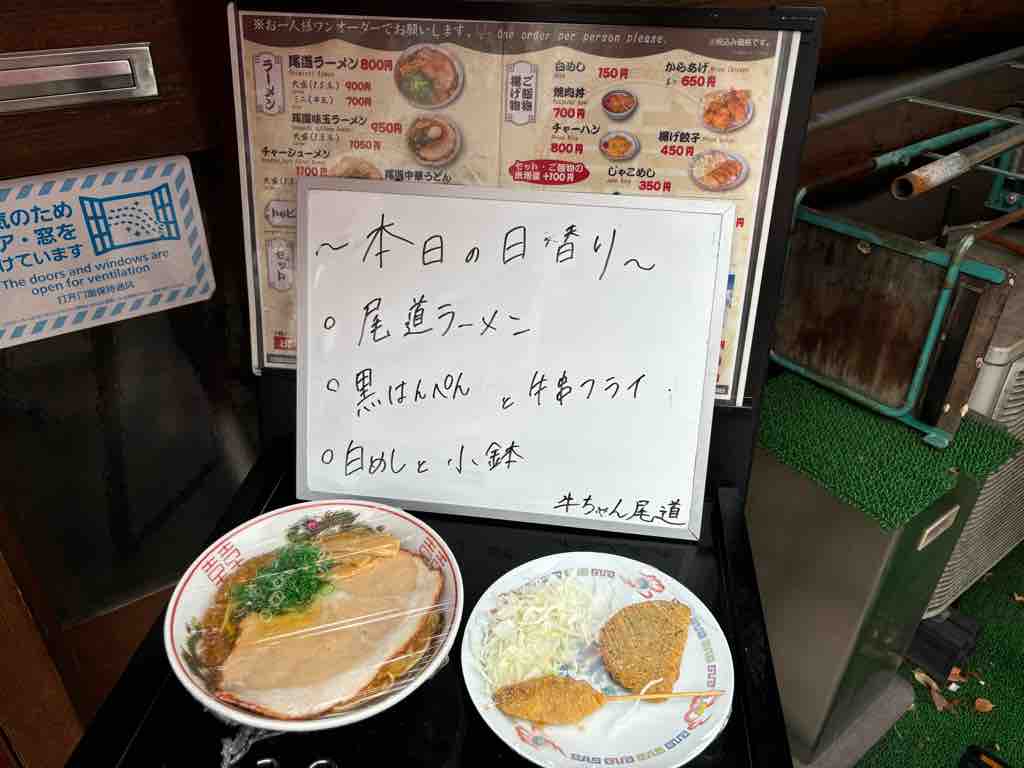 ※お一人様ワンオーダーでお願いします。 One order per person please.
※税込み価格です。
ラーメン
尾道ラーメン 800円
大盛(1.5玉) 900円
ミニ(半玉) 700円
尾道味玉ラーメン 950円
大盛(1.5玉) 1050円
チャーシューメン
1100円
尾道中華うどん
セット
ご飯物
揚げ物
白めし 150円
焼肉丼
700円
チャーハン
800円
セット・ご飯物の
+100円
からあげ
650円
揚げ餃子
450円
じゃこめし
350円
気のため
ア・窓を
けています
The doors and windows are
open for ventilation
打开门窗保持通风
～本日の日替り～
○ 尾道ラーメン
○ 黒はんぺん と 牛串フライ
○ 白めしと 小鉢
牛ちゃん尾道